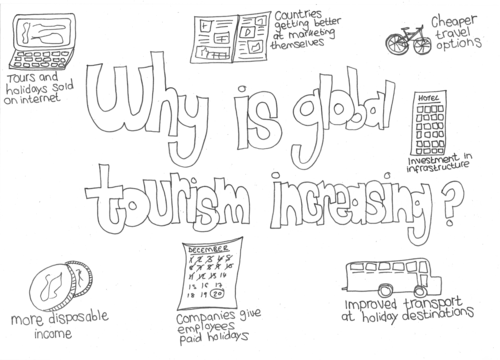 Tours and
holidays sold
on internet
Countries
getting better
at marketing
themselves
Cheaper
travel
options
Why is global
tourism increasing?
HOTEL
Investment in
infrastructure
more disposable
income
DECEMBER
Companies give
employees
paid holidays
Improved transport
at holiday destinations